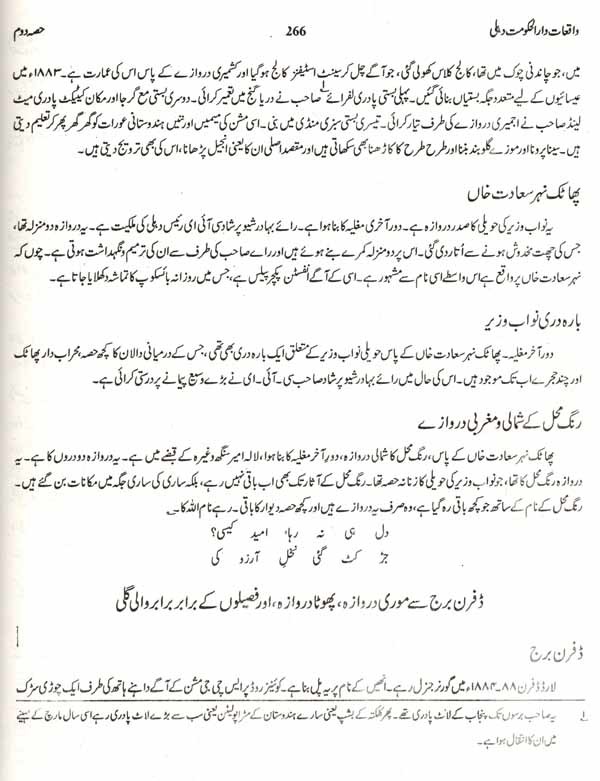 واقعات دارالحکومت دہلی 266 حصہ دوم
میں، جو چاندنی چوک میں تھا، کالج کلاس کھولی گئی، جو آگے چل کر سینٹ اسٹیفنز کالج ہوگیا اور کشمیری دروازے کے پاس اس کی عمارت ہے۔ ۱۸۸۳ء میں
عیسائیوں کے لیے متعدد جگہ بستیاں بنائی گئیں۔ پہلی بستی پادری لفرائے۱ صاحب نے دریا گنج میں تعمیر کرائی۔ دوسری بستی مع گرجا اور مکان کیٹیکٹ پادری میٹ
لینڈ صاحب نے اجمیری دروازے کی طرف تیار کرائی۔ تیسری بستی سبزی منڈی میں بنی۔ اسی مشن کی میمیں اور نئیں ہندوستانی عورات کو گھر گھر پھر کر تعلیم دیتی
ہیں۔ سینا پرونا اور موزے گلوبند بننا اور طرح طرح کا کاڑھنا بھی سکھاتی ہیں اور مقصد اصلی ان کا یعنی انجیل پڑھانا، اس کی بھی ترویج دیتی ہیں۔
پھاٹک نہر سعادت خاں
یہ نواب وزیر کی حویلی کا صدر دروازہ ہے۔ دور آخری مغلیہ کا بنا ہوا ہے۔ رائے بہادر شیو پرشاد سی آئی ای رئیس دہلی کی ملکیت ہے۔ یہ دروازہ دو منزلہ تھا،
جس کی چھت مخدوش ہونے سے اُتار دی گئی۔ اس پر دو منزلہ کمرے بنے ہوئے ہیں اور رائے صاحب کی طرف سے ان کی ترمیم و نگہداشت ہوتی ہے۔ چوں کہ
نہر سعادت خاں پر واقع ہے اس واسطے اسی نام سے مشہور ہے۔ اسی کے آگے الفنسٹن پکچر پیلس ہے، جس میں روزانہ بائسکوپ کا تماشہ دکھلایا جاتا ہے۔
بارہ دری نواب وزیر
دور آخر مغلیہ۔ پھاٹک نہر سعادت خاں کے پاس حویلی نواب وزیر کے متعلق ایک بارہ دری بھی تھی، جس کے درمیانی دالان کا کچھ حصہ محراب دار پھاٹک
اور چند حجرے اب تک موجود ہیں۔ اس کی حال میں رائے بہادر شیو پرشاد صاحب سی۔ آئی۔ ای نے بڑے وسیع پیمانے پر درستی کرائی ہے۔
رنگ محل کے شمالی و مغربی دروازے
پھاٹک نہر سعادت خاں کے پاس، رنگ محل کا شمالی دروازہ، دور آخر مغلیہ کا بنا ہوا، لالہ امیر سنگھ وغیرہ کے قبضے میں ہے۔ یہ دروازہ دو دروں کا ہے۔ یہ
دروازہ رنگ محل کا تھا، جو نواب وزیر کی حویلی کا زنانہ حصہ تھا۔ رنگ محل کے آثار تک بھی اب باقی نہیں رہے، بلکہ ساری کی ساری جگہ میں مکانات بن گئے ہیں۔
رنگ محل کے نام کے ساتھ جو کچھ باقی رہ گیا ہے، وہ صرف یہ دروازے ہیں اور کچھ حصہ دیوار کا باقی۔ رہے نام اللہ کا ؎
دل ہی نہ رہا، امید کیسی؟
جڑ کٹ گئی نخلِ آرزو کی
ڈفرن برج سے موری دروازہ، پھوٹا دروازہ، اور فصیلوں کے برابر برابر والی گلی
ڈفرن برج
لارڈ ڈفرن ۸۸۔۱۸۸۴ء میں گورنر جنرل رہے۔ انھیں کے نام پر یہ پل بنا ہے۔ کوئینز روڈ پر ایس پی جی مشن کے آگے داہنے ہاتھ کی طرف ایک چوڑی سڑک
۱ یہ صاحب برسوں تک پنجاب کے لاٹ پادری تھے۔ پھر کلکتہ کے بشپ یعنی سارے ہندوستان کے مٹراپولیٹن یعنی سب سے بڑے لاٹ پادری رہے اسی سال مارچ کے مہینے
میں ان کا انتقال ہوا ہے۔